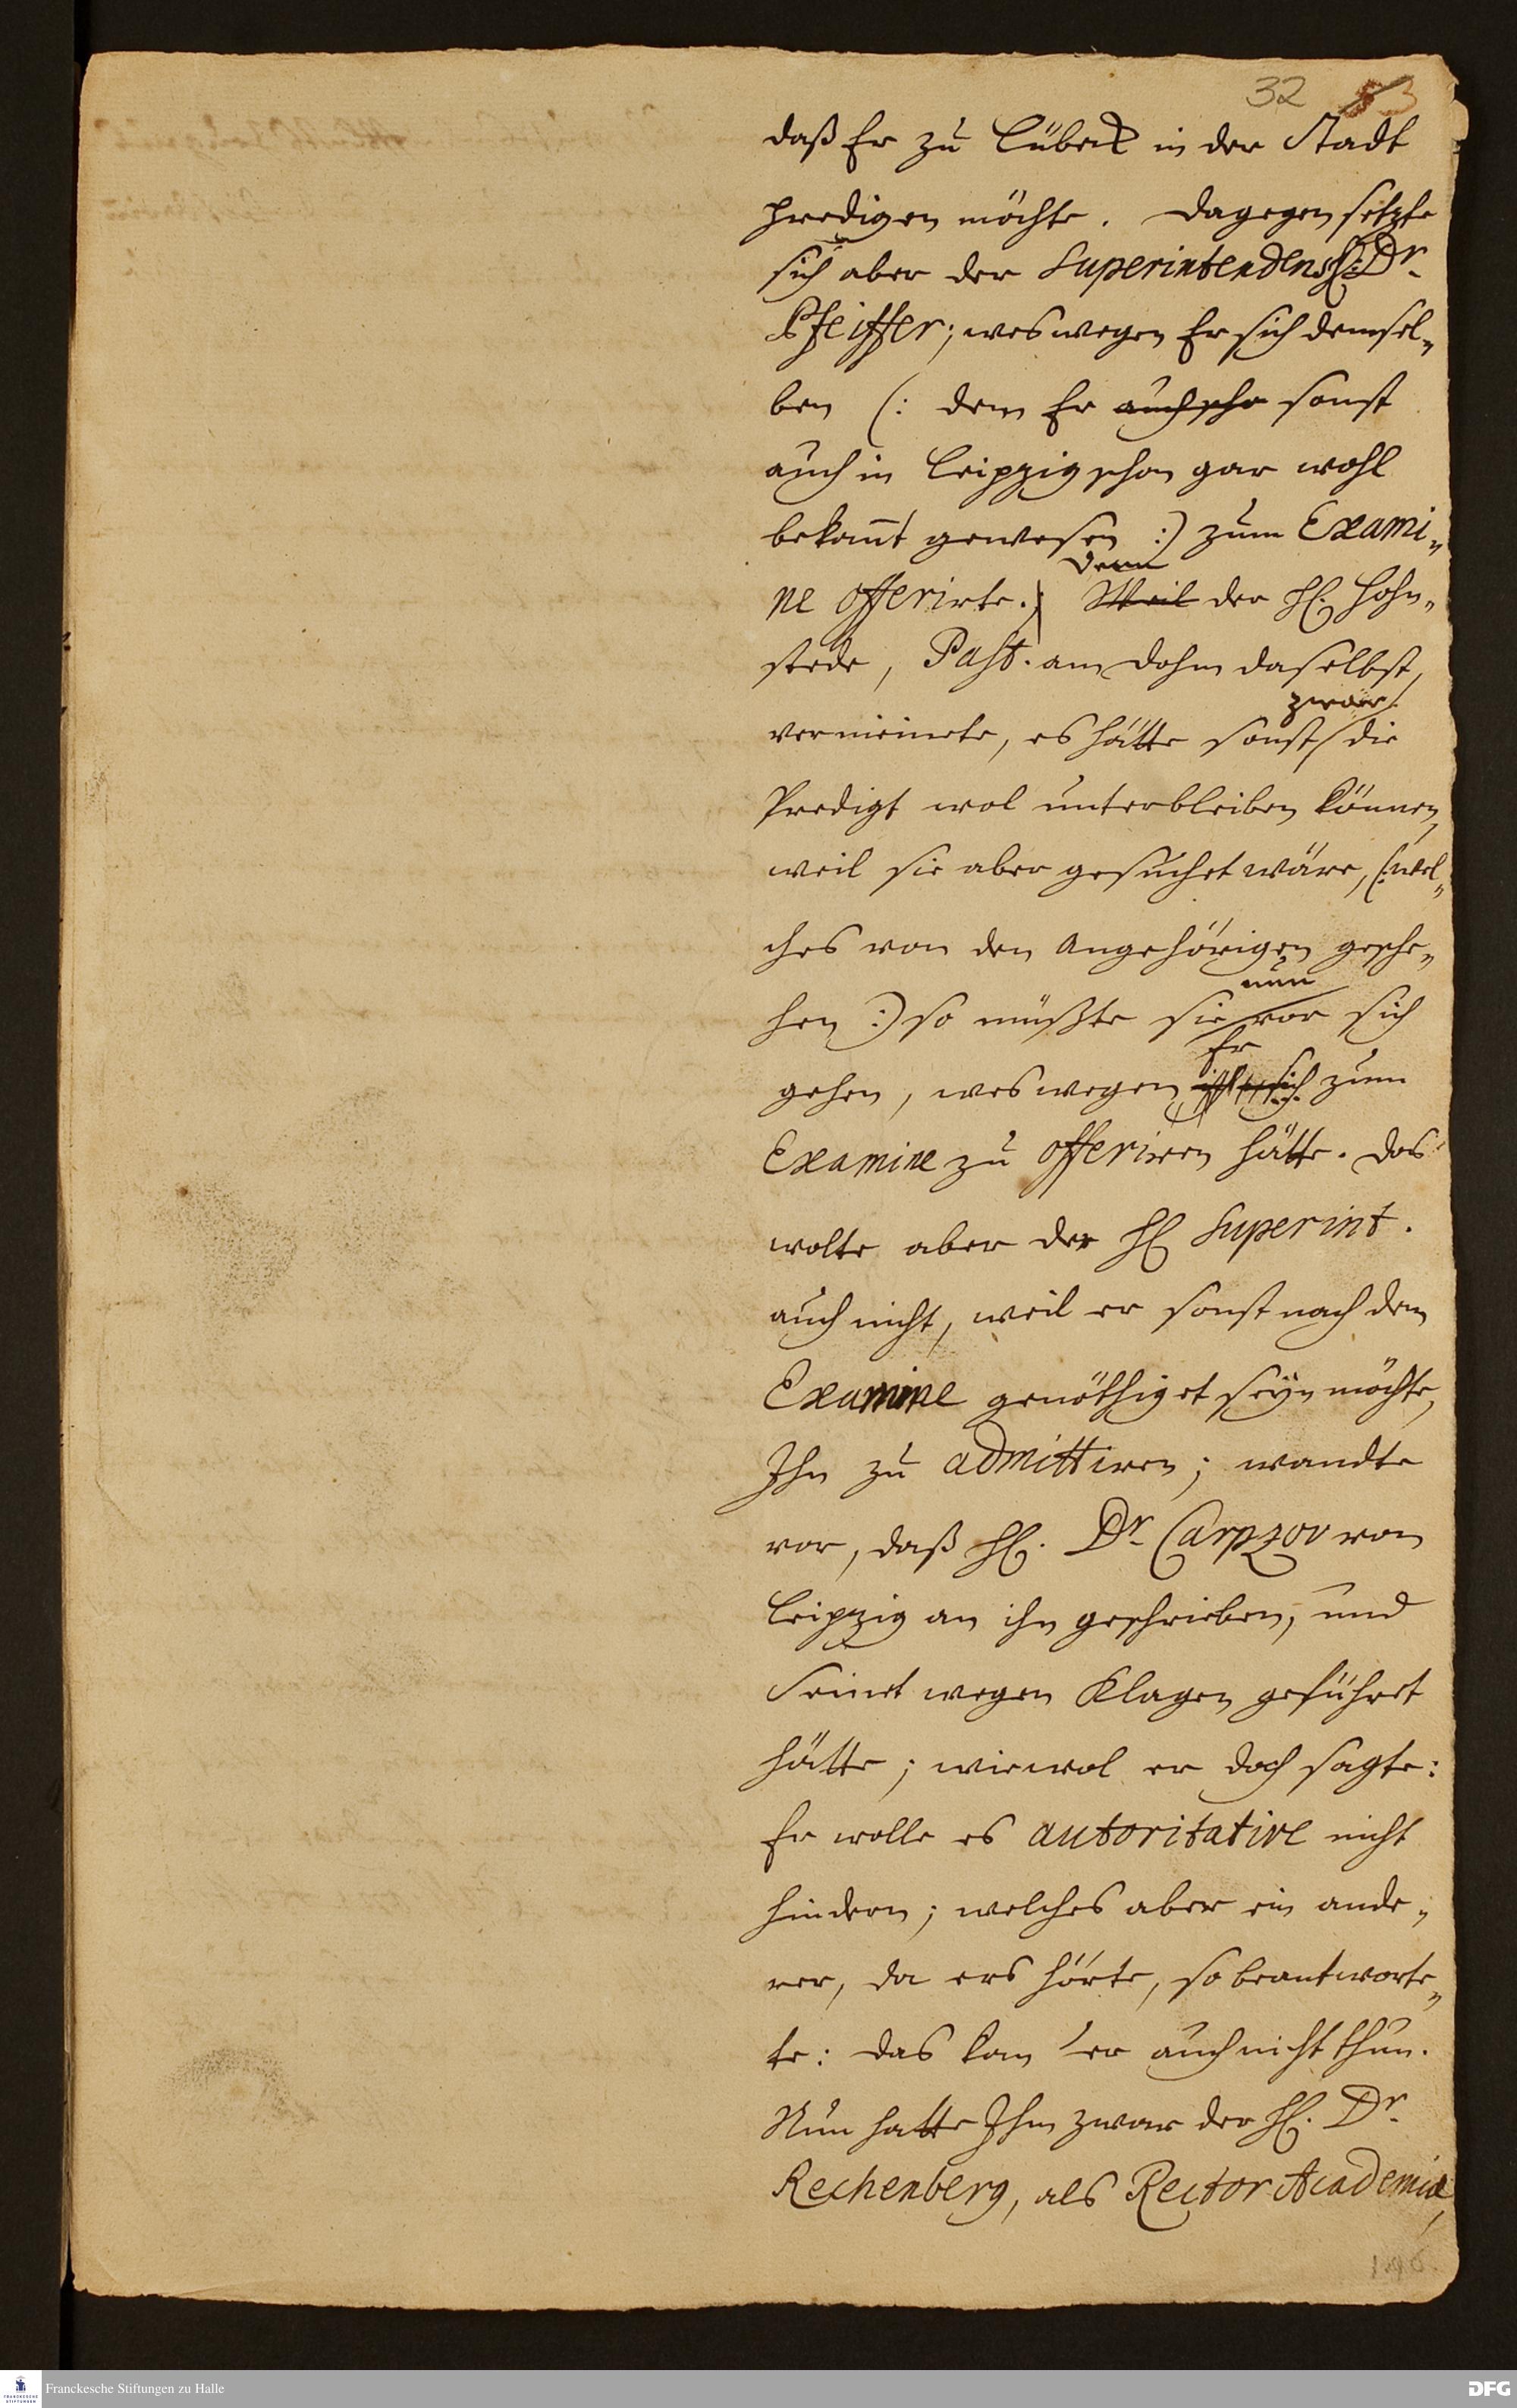 32 53
daß Er zu Lübeck in der Stadt
predigen möchte. Dagegen setzte
sich aber der Superintendens H. Dr.
Pfeiffer; weswegen Er sich demsel„
ben (: dem Er auch schon sonst
auch in Leipzig schon gar wohl
bekant gewesen :) zum Exami„
denn
ne offerirte. Weil der H. Hohn„
stede, Past. am Dohm daselbst,
zwar
vermeinete, es hätte sonst die
Predigt wol unterbleiben können,
weil sie aber gesuchet wäre, (: wel„
ches von den Angehörigen gesche„
nun
hen :) so müßte sie vor sich
Er
gehen, weswegen sich zum
Examine zu offeriren hätte. Das
wolte aber der H Superint.
auch nicht, weil er sonst nach dem
Examine genöthiget seyn möchte,
Ihn zu admittiren; wandte
vor, daß H. Dr. Carpzov von
Leipzig an ihn geschrieben, und
Seinet wegen Klagen geführet
hätte; wiewol er doch sagte:
Er wolle es autoritative nicht
hindern; welches aber ein ande„
rer, da ers hörte, so beantworte„
te: das kan er auch nicht thun.
Nun hatte Ihm zwar der H. Dr.
Rechenberg, als Rector Academiæ,
Franckesche Stiftungen zu Halle
DFG